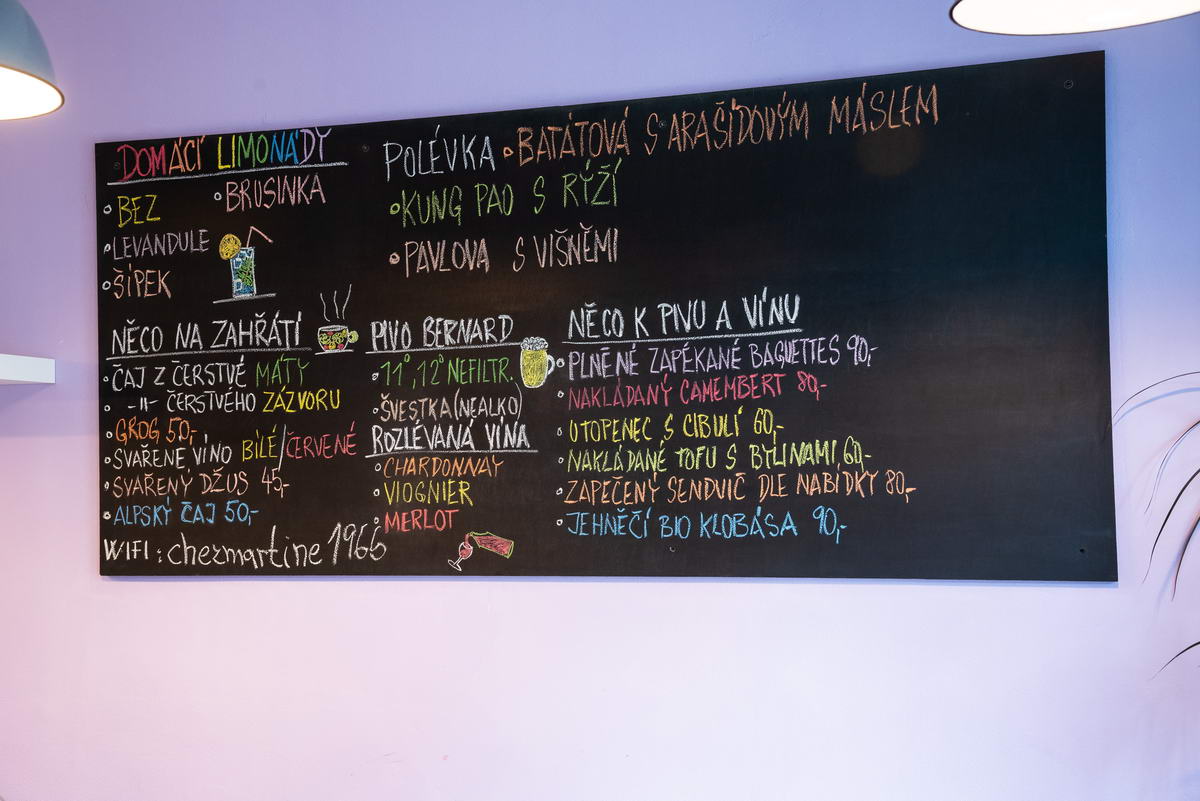 DOMÁCÍ LIMONÁDY
• BEZ • BRUSINKA
• LEVANDULE
• ŠÍPEK
POLÉVKA • BATÁTOVÁ S ARAŠÍDOVÝM MÁSLEM
• KUNG PAO S RÝŽÍ
• PAVLOVA S VIŠNĚMI
NĚCO NA ZAHŘÁTÍ
• ČAJ Z ČERSTVÉ MÁTY
• -11- ČERSTVÉHO ZÁZVORU
• GROG 50,-
• SVAŘENÉ VÍNO BÍLÉ/ČERVENÉ
• SVAŘENÝ DŽUS 45,-
• ALPSKÝ ČAJ 50,-
WIFI: chezmartine1966
PIVO BERNARD
• 11°, 12° NEFILTR.
• ŠVESTKA (NEALKO)
ROZLÉVANÁ VÍNA
• CHARDONNAY
• VIOGNIER
• MERLOT
NĚCO K PIVU A VÍNU
• PLNĚNÉ ZAPÉKANÉ BAGUETTES 90,-
• NAKLÁDANÝ CAMEMBERT 80,-
• UTOPENEC S CIBULÍ 60,-
• NAKLÁDANÉ TOFU S BYLINAMI 60,-
• ZAPEČENÝ SENDVIČ DLE NABÍDKY 80,-
• JEHNĚČÍ BIO KLOBÁSA 90,-